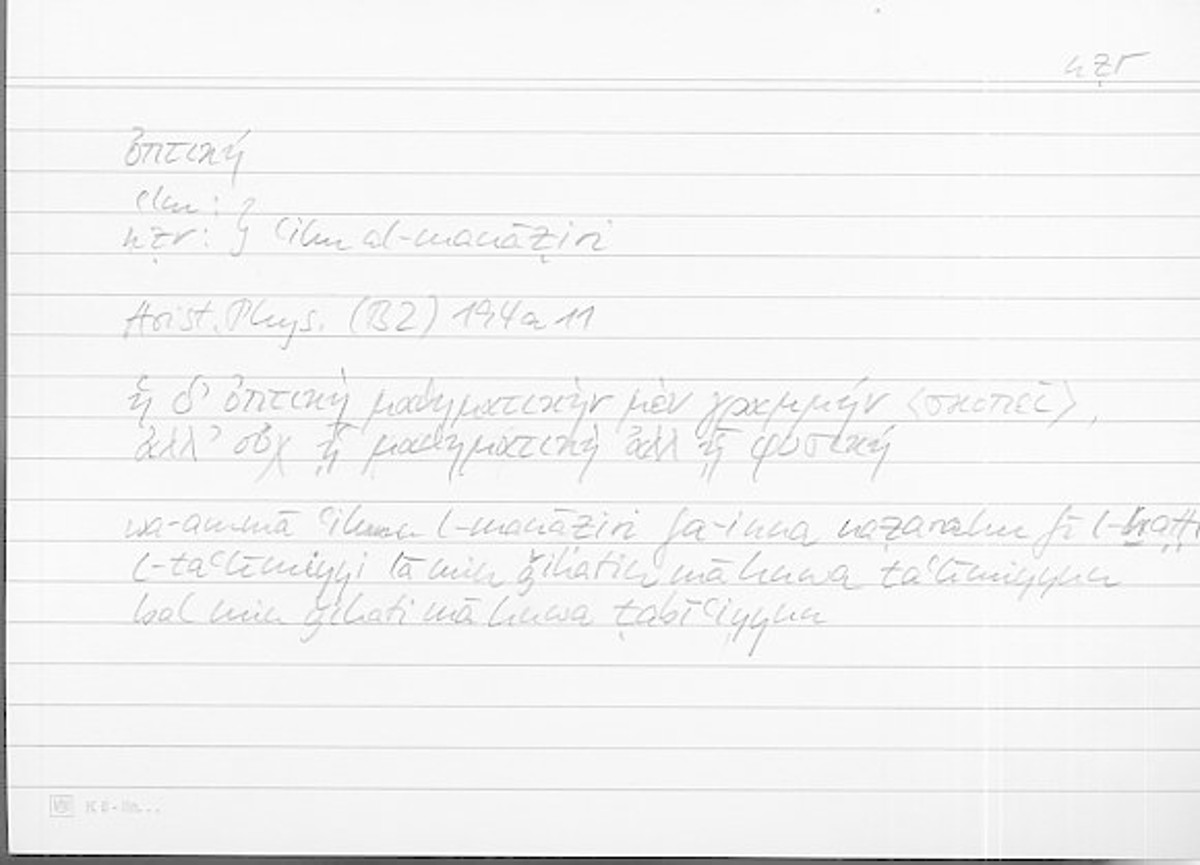 nẓr
ὀπτική
ʿlm: }
nẓr: } ʿilm al-manāẓiri
Arist. Phys. (B2) 194a 11
ἡ δ' ὀπτικὴ μαθηματικὴν μὲν γραμμήν ⟨σκοπεῖ⟩,
ἀλλ' οὐχ ᾗ μαθηματικὴ ἀλλ ᾗ φυσική
wa-ammā ʿilmu l-manāẓiri fa-inna naẓarahu fī l-ḫaṭṭi
l-taʿlīmiyyi lā min ǧihatin mā huwa taʿlīmiyyun
bal min ǧihati mā huwa ṭabīʿiyyun